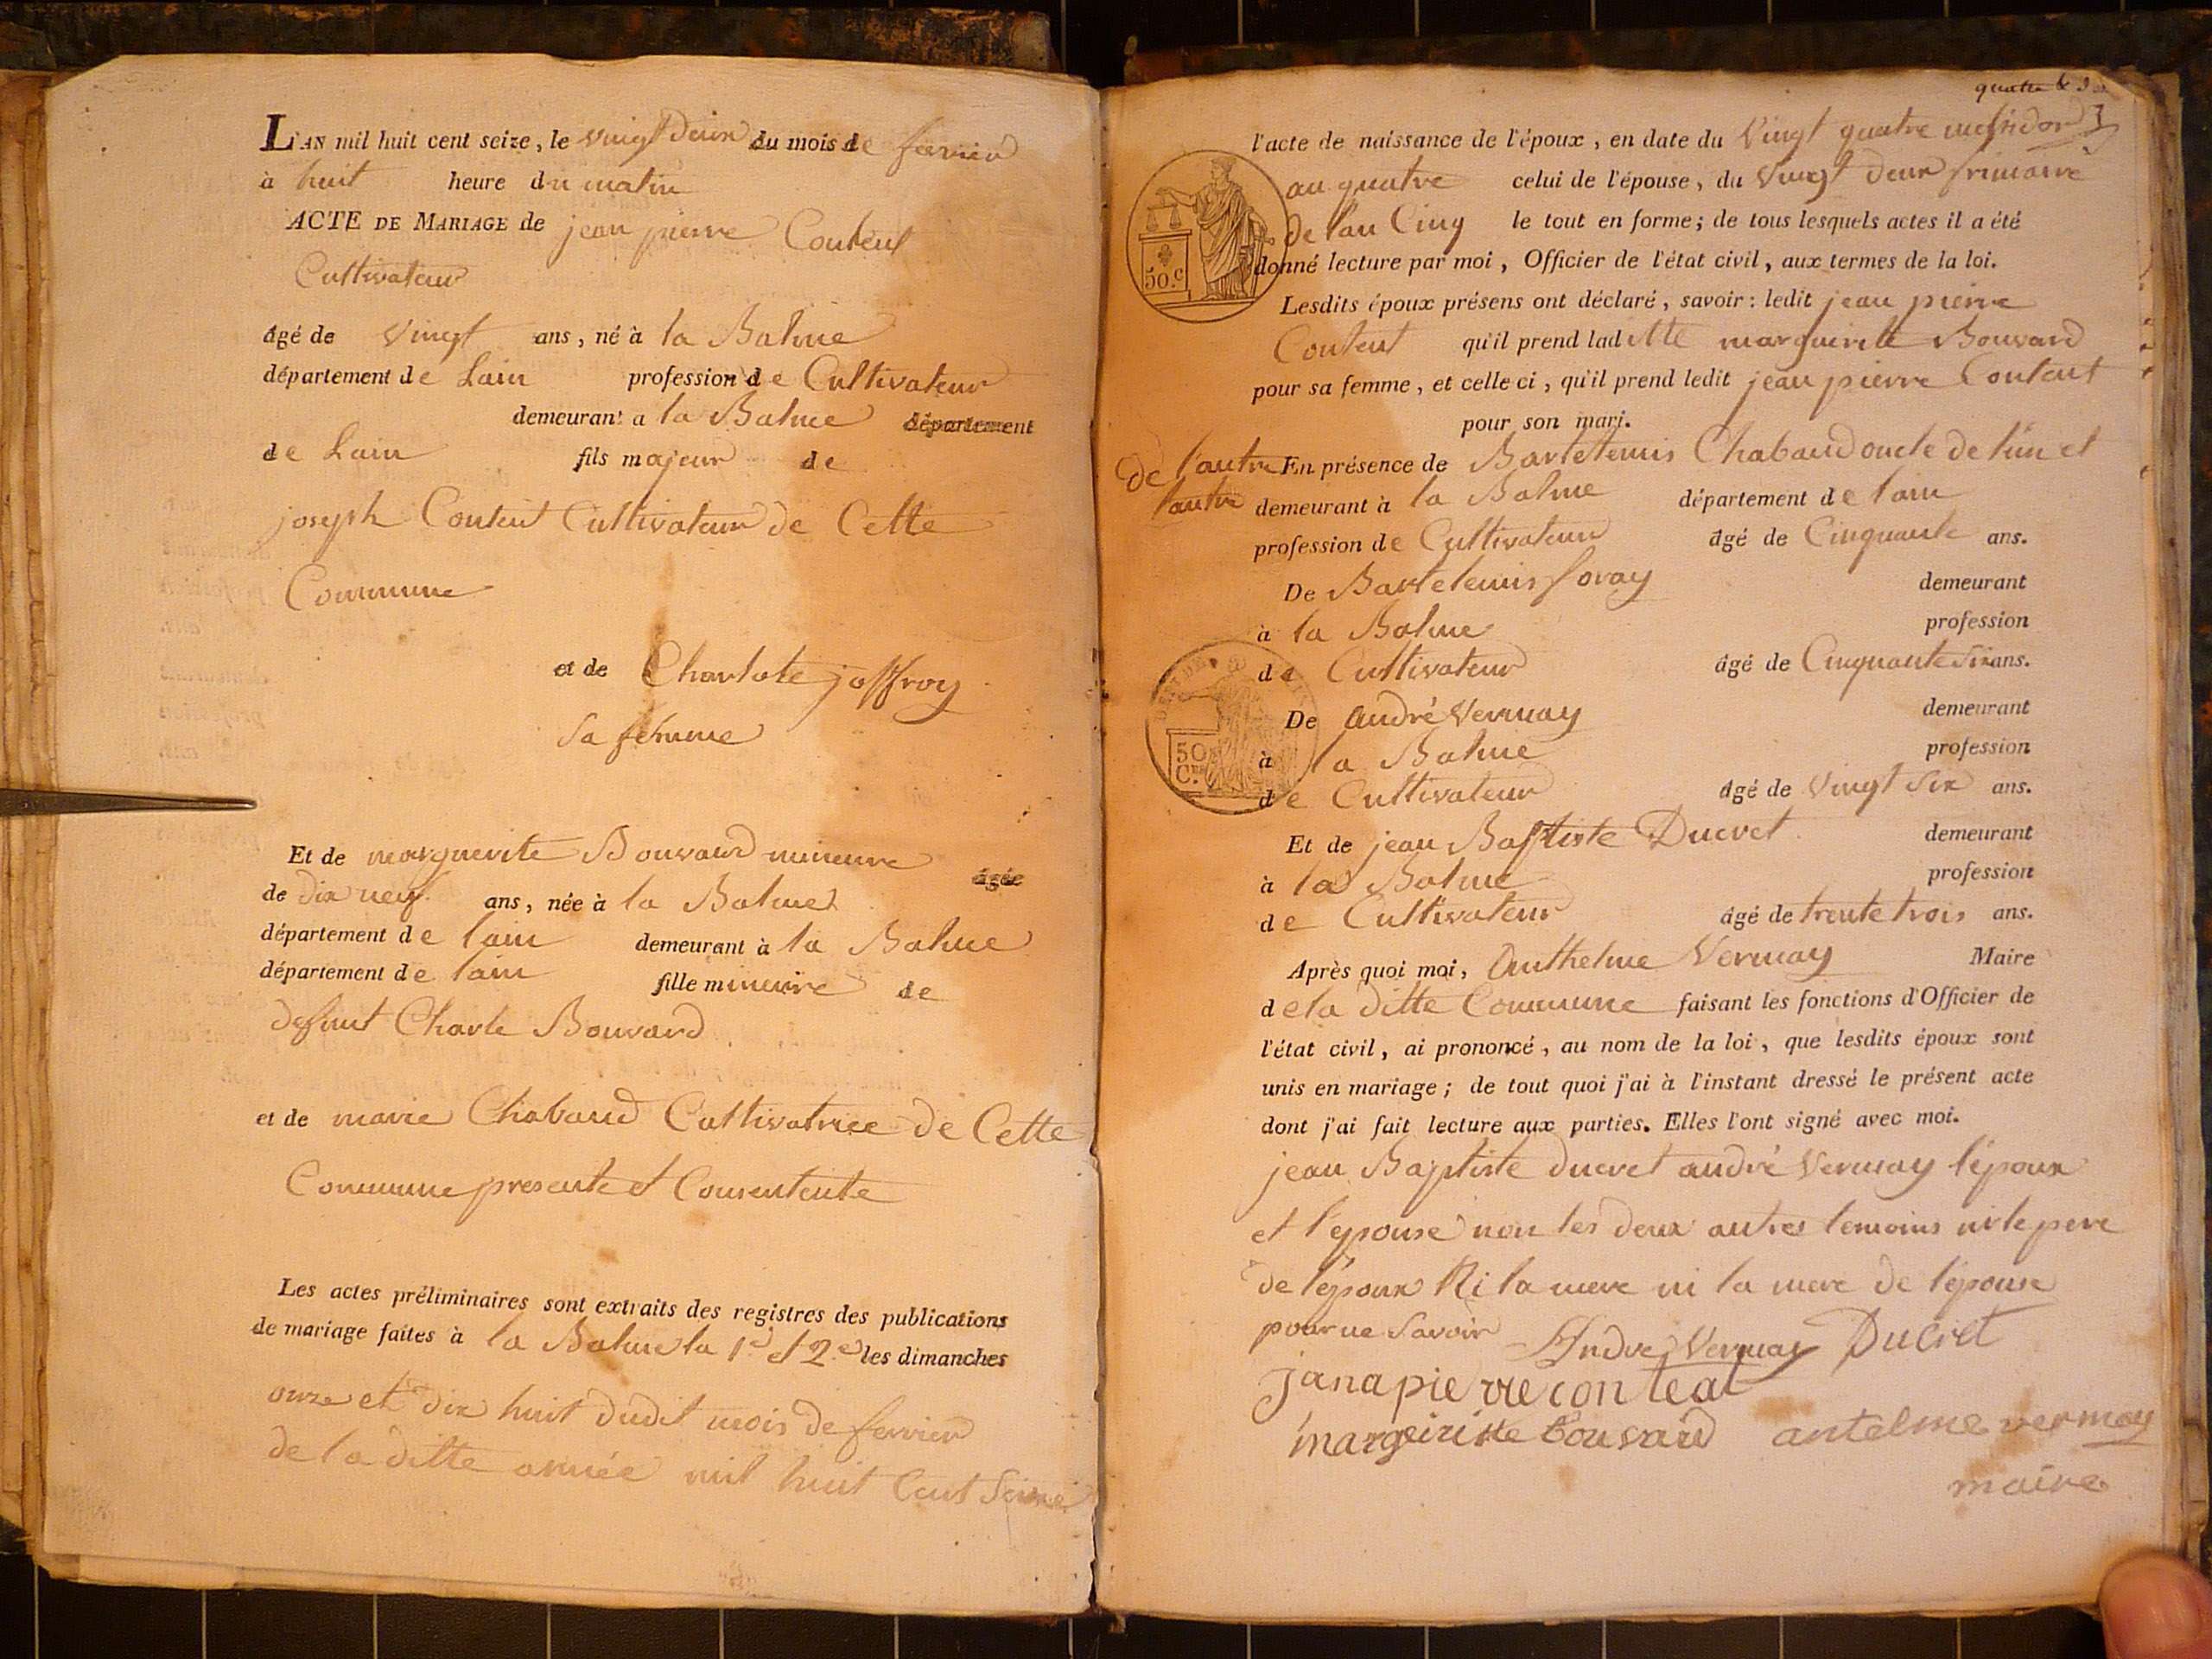 L'AN mil huit cent seize, le vingt deux du mois de fevrier
à huit heure du matin
ACTE DE MARIAGE de jean pierre Content
Cultivateur
âgé de vingt ans, né à la Balme
département de Lain profession de Cultivateur
demeurant a la Balme département
de Lain fils majeur de
joseph Content Cultivateur de Cette
Commune
et de Charlote joffroy
sa femme
Et de marguerite Bouvard mineure âgée
de dix neuf ans, née à la Balme
département de lain demeurant à la Balme
département de lain fille mineure de
defunt Charle Bouvard
et de marie Chaband Cultivatrice de Cette
Commune presente et Consentente
Les actes préliminaires sont extraits des registres des publications
de mariage faites à la Balme la 1e et 2e les dimanches
onze et dix huit dudit mois de fevrier
de la ditte année mil huit Cent Seize
quatre &
l'acte de naissance de l'époux, en date du vingt quatre messidor
an quatre celui de l'épouse, du vingt deux frimaire
de l'an Cinq le tout en forme; de tous lesquels actes il a été
50.c
donné lecture par moi, Officier de l'état civil, aux termes de la loi.
Lesdits époux présens ont déclaré, savoir: ledit jean pierre
Content qu'il prend laditte marguerite Bouvard
pour sa femme, et celle ci, qu'il prend ledit jean pierre Contant
pour son mari.
de l'autre En présence de Bartelemis Chaband oncle de l'un et
lautre demeurant à la Balme département de lain
profession de Cultivateur âgé de Cinquante ans.
De Bartelemis foray demeurant
à la Balme profession
de Cultivateur âgé de Cinquante six ans.
De andré Vermay demeurant
à la Balme profession
50 C.es
de Cultivateur âgé de vingt six ans.
Et de jean Baptiste Ducret demeurant
à la Balme profession
de Cultivateur âgé de trente trois ans.
Après quoi moi, Anthelme Vermay Maire
de la ditte Commune faisant les fonctions d'Officier de
l'état civil, ai prononcé, au nom de la loi, que lesdits époux sont
unis en mariage; de tout quoi j'ai à l'instant dressé le présent acte
dont j'ai fait lecture aux parties. Elles l'ont signé avec moi.
jean Baptiste ducret andré Vermay l'époux
et l'épouse non les deux autres temoins ni le pere
de lépoux Ni la mere ni la mere de l'épouse
pour ne savoir Andre Vermay Ducret
jana pie rre con teat
margeiritte bouvard antelme vermay
maire